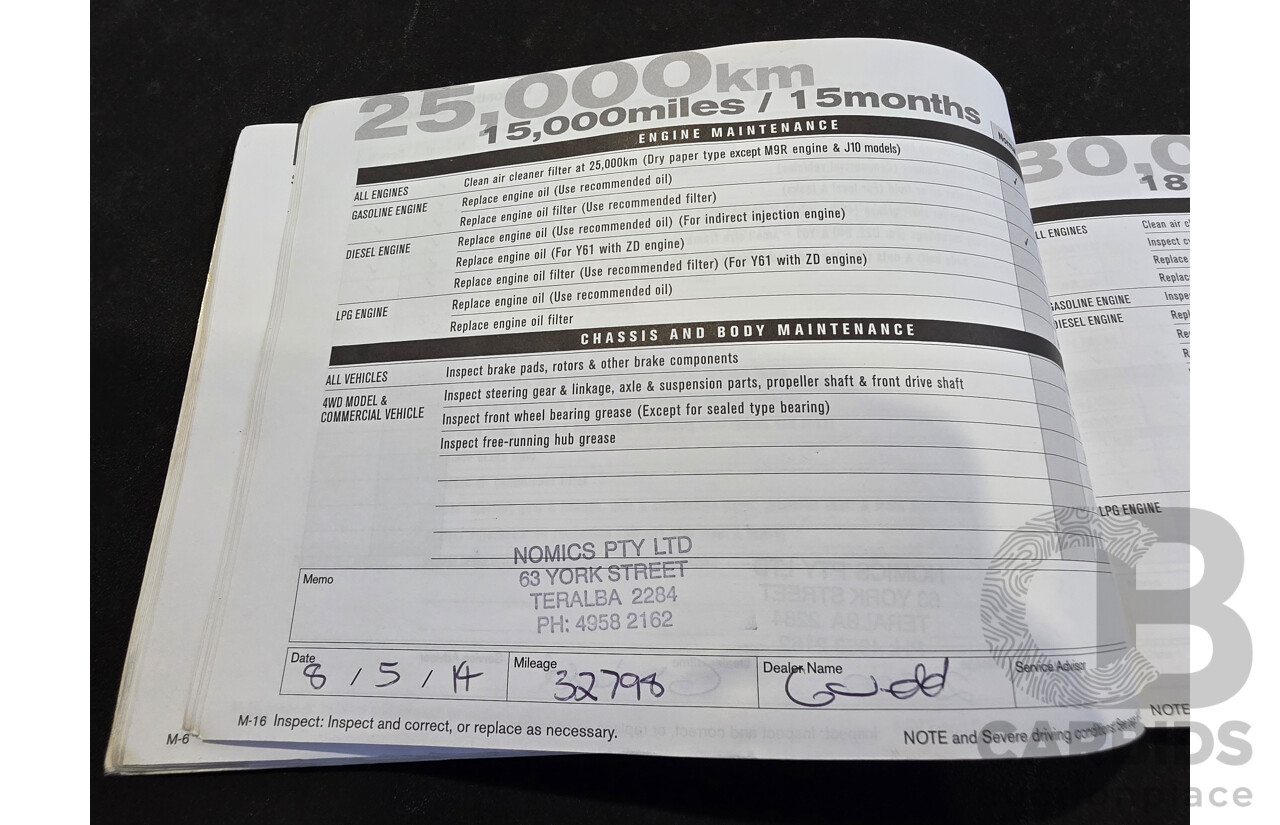 25,000km
15,000miles / 15months
ENGINE MAINTENANCE
ALL ENGINES Clean air cleaner filter at 25,000km (Dry paper type except M9R engine & J10 models)
GASOLINE ENGINE Replace engine oil (Use recommended oil)
Replace engine oil filter (Use recommended filter)
DIESEL ENGINE Replace engine oil (Use recommended oil) (For indirect injection engine)
Replace engine oil (For Y61 with ZD engine)
Replace engine oil filter (Use recommended filter) (For Y61 with ZD engine)
LPG ENGINE Replace engine oil (Use recommended oil)
Replace engine oil filter
CHASSIS AND BODY MAINTENANCE
ALL VEHICLES Inspect brake pads, rotors & other brake components
4WD MODEL &
COMMERCIAL VEHICLE
Inspect steering gear & linkage, axle & suspension parts, propeller shaft & front drive shaft
Inspect front wheel bearing grease (Except for sealed type bearing)
Inspect free-running hub grease
Memo
NOMICS PTY LTD
63 YORK STREET
TERALBA 2284
PH: 4958 2162
Date 8 / 5 / 14
Mileage 32798
Dealer Name
Service Advisor
M-16 Inspect: Inspect and correct, or replace as necessary.
NOTE and Severe driving conditions
M-6
30,0
18
LL ENGINES Clean air cl
Inspect
Replace
Replac
GASOLINE ENGINE Inspe
DIESEL ENGINE Repl
Re
R
LPG ENGINE
NOTE
CARBIDS